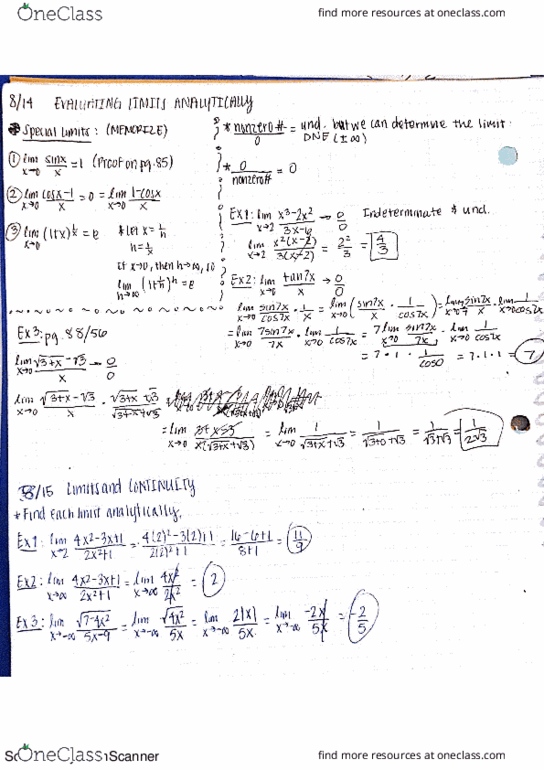 OneClass
find more resources at oneclass.com
8/14 EVALUATING LIMITS ANALYTICALLY
Special Limits: (MEMORIZE)
① lim x→0 sinx/x = 1 (Proof on pg. 85)
② lim x→0 cosx-1/x = 0 = lim x→0 1-cosx/x
③ lim x→0 (1+x)^1/x = e
* let x = 1/h
h = 1/x
if x→0, then h→∞, so
lim h→∞ (1+1/h)^h = e
* nonzero#/0 = und. but we can determine the limit.
DNE (±∞)
* 0/nonzero# = 0
Ex1: lim x→2 x³-2x²/3x-6 → 0/0 Indeterminate & und.
lim x→2 x²(x-2)/3(x-2) = 2²/3 = 4/3
Ex2: lim x→0 tan7x/x → 0/0
lim x→0 sin7x/cos7x · 1/x = lim x→0 (sin7x/x · 1/cos7x) = lim x→0 sin7x/x · lim x→0 1/cos7x
= lim x→0 7sin7x/7x · lim x→0 1/cos7x = 7 lim x→0 sin7x/7x · lim x→0 1/cos7x
= 7 · 1 · 1/cos0 = 7·1·1 = 7
Ex3: pg. 88/56
lim x→0 √3+x - √3/x → 0/0
lim x→0 √3+x - √3/x · √3+x √3/√3+x+√3
= lim x→0 3+x-3/x(√3+x+√3) = lim x→0 1/√3+x+√3 = 1/√3+0+√3 = 1/√3+√3 = 1/2√3
8/15 Limits and CONTINUITY
* Find each limit analytically.
Ex1: lim x→2 4x²-3x+1/2x²+1 = 4(2)²-3(2)+1/2(2)²+1 = 16-6+1/8+1 = 11/9
Ex2: lim x→∞ 4x²-3x+1/2x²+1 = lim x→∞ 4x²/2x² = 2
Ex3: lim x→-∞ √7-4x²/5x-9 = lim x→-∞ √4x²/5x = lim x→-∞ 2|x|/5x = lim x→-∞ -2x/5x = -2/5
OneClass
Scanner
find more resources at oneclass.com